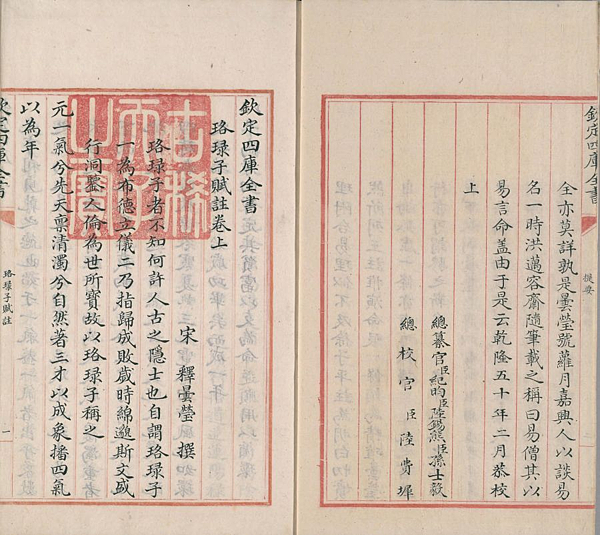 欽定四庫全書
提要
全亦莫詳孰是曇瑩號蘿月嘉興人以談易
名一時洪邁容齋隨筆載之稱曰易僧其以
易言命盖由于是云乾隆五十年二月恭校
上
總纂官臣紀昀臣陸錫熊臣孫士毅
總校官臣陸費墀
欽定四庫全書
珞琭子賦註卷上
宋 釋曇瑩 撰
珞琭子者不知何許人古之隱士也自謂珞琭子
一為布德立儀二乃指歸成敗歲時綿邈斯文盛
行洞鑒人倫為世所寶故以珞琭子稱之
元一氣兮先天禀清濁兮自然著三才以成象播四氣
以為年
欽定四庫全書
珞琭子賦註
一
古稀
天子
之寶